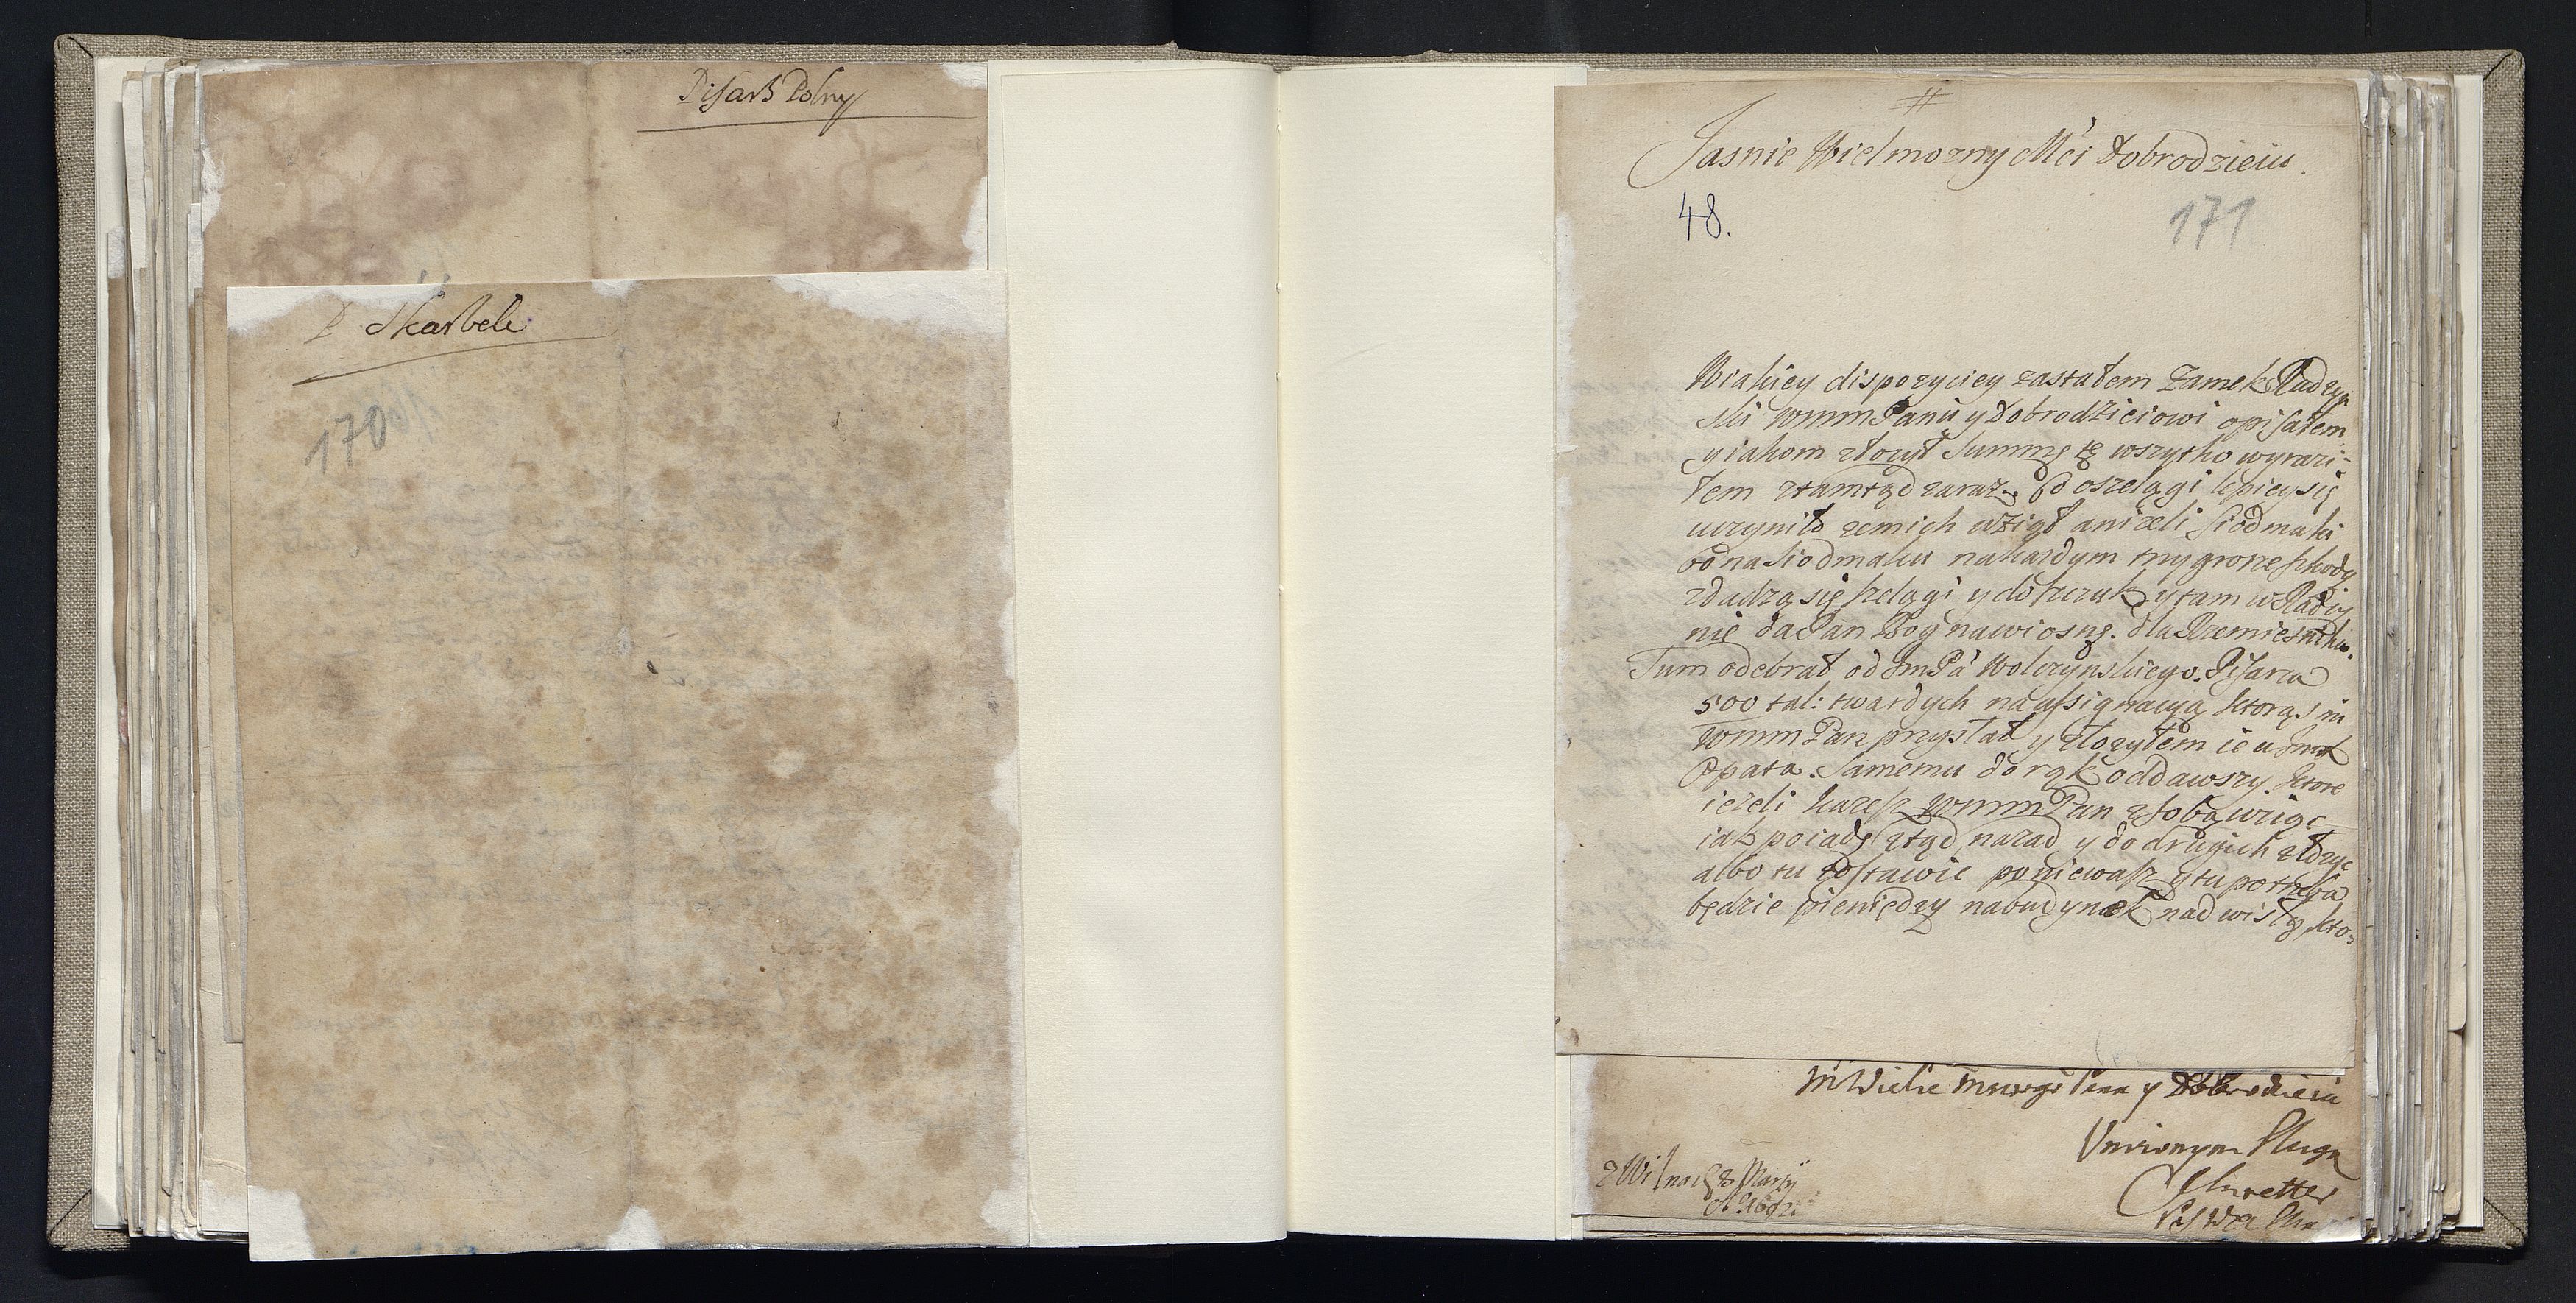 Pisarz Polny
P Skarbek
170
#
Jasnie Wielmozny Mći Dobrodzieiu.
48.
171
Wiakiey dispozyciey zastałem Zamek Radzyn
ski wmm Panu y Dobrodzieiowi opisałem
y iakom złozył Summę tę wszytko wyrazi-
łem ztamtąd zaraz. o szelągi lepiey się
uczyniło zemich wziął anizeli siodmaki
bo na siodmaku nakazdym trzy grosze szkody
zdadzą się szelągi y do y tam w Radzy
nie da Pan Bog nawiosnę. dla Rzemiesnikow.
Tum odebrał od Jm Pa Wolczynskiego. Pisarza
500 tal: twardych na assignacyą ktorąs mi
wmm Pan przysłał y złozyłem ie u
Opata. Samemu do rąk oddawszy. ktore
iezeli kazesz wmm Pan zsobą wziąc
iak poiadę ztąd nazad y do drugich złozyc
albo tu zostawic poniewasz y tu potrzeba
będzie pieniędzy nabudynek nad wisłą kto-
Pana y Dobrodzieia
Unizonym Sługą
z Wilna 8 Marty